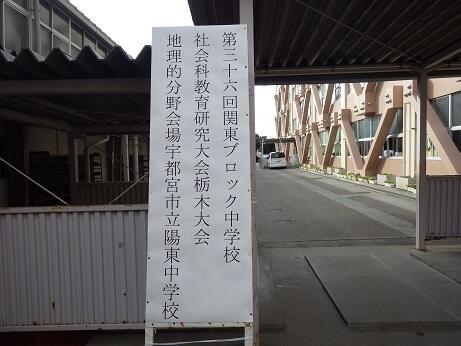 第三十六回関東ブロック中学校
社会科教育研究大会栃木大会
地理的分野会場宇都宮市立陽東中学校